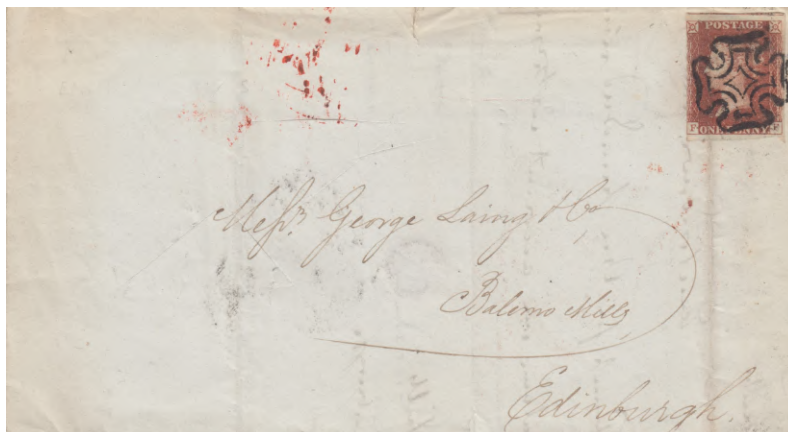 POSTAGE
ONE PENNY
Messrs. George Laing & Co
Balerno Mills
Edinburgh.